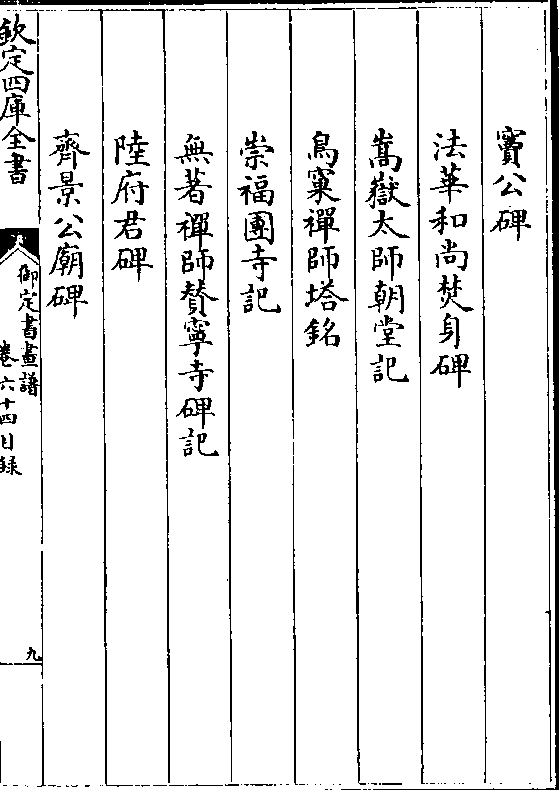 竇公碑
法華和尚焚身碑
嵩嶽太師朝堂記
鳥窠禪師塔銘
崇福團寺記
無著禪師賛寧寺碑記
陸府君碑
齊景公廟碑
欽定四庫全書
御定書畫譜
卷六十四目録
九